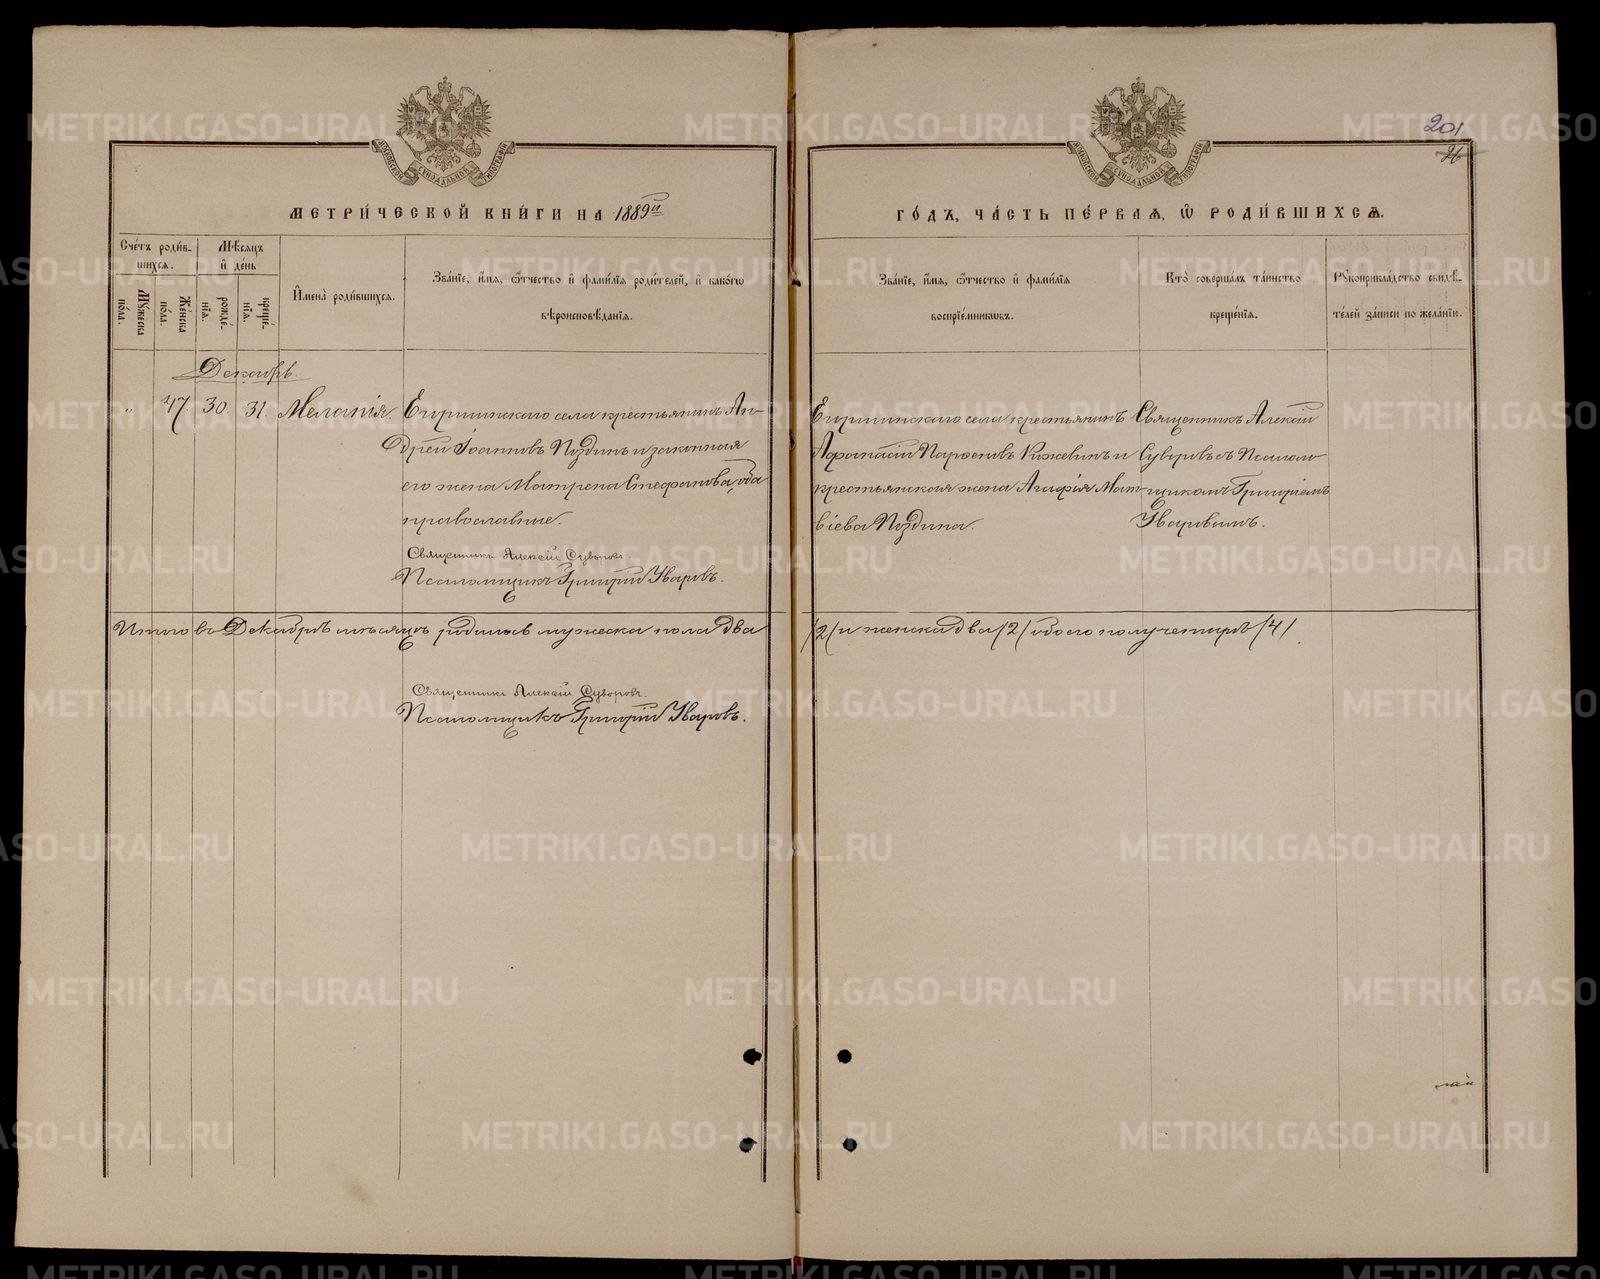 201
26
МЕТРИ́ЧЕСКОЙ КНИ́ГИ НА 1889й
ГО́ДЪ, ЧА́СТЬ ПЕ́РВАЯ, Ѿ РОДИ́ВШИХСЯ.
Сче́тъ роди́в-
шихся.
Мѣ́сяцъ
и҆ де́нь
Му́жеска
по́ла.
Же́нска
по́ла.
рожде́-
нїя.
креще́-
нїя.
И҆мена̀ роди́вшихся.
Зва́нїе, и҆́мя, ѻ҆́тчество и҆ фами́лїя роди́телей, и҆ како́гѡ
вѣроисповѣ́данїя.
Зва́нїе, и҆́мя, ѻ҆́тчество и҆ фами́лїя
воспрїе́мникѡвъ.
Кто̀ соверша́лъ та́инство
креще́нїя.
Рꙋкоприкла́дство свидѣ́-
телей за́писи по жела́нїю.
Декабрь
" 47. 30. 31. Меланія.
Егоршинскаго села крестьянинъ Ан-
дрей Іоанновъ Поздинъ и законная
его жена Матрена Стефанова, оба
православные.
Священникъ Алексій Суворовъ.
Псаломщикъ Григорій Уваровъ.
Егоршинскаго села крестьянинъ
крестьянская жена Агафія Мат-
віева Поздина.
Священникъ Алексій
Суворовъ съ Псалом-
щикомъ Григоріемъ
Уваровымъ.
Итого въ Декабрѣ мѣсяцѣ родилось мужеска пола два
/2/ и женска два /2/ обоего полу четыре /4/.
Священникъ Алексій Суворовъ.
Псаломщикъ Григорій Уваровъ.
METRIKI.GASO-URAL.RU